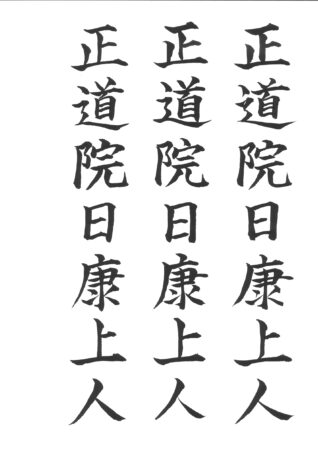 正道院日康上人
正道院日康上人
正道院日康上人